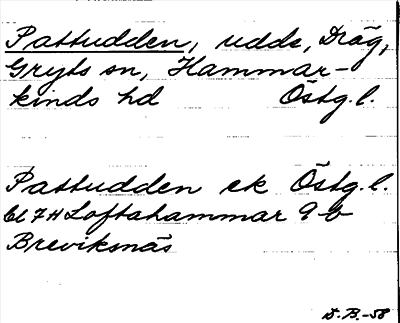 Pattudden, udde, Dräg,
Gryts sn, Hammar-
kinds hd Östg.l.
Pattudden ek Östg.l.
Cl 7H Loftahammar 9-b
Breviksnäs
D.B.-58